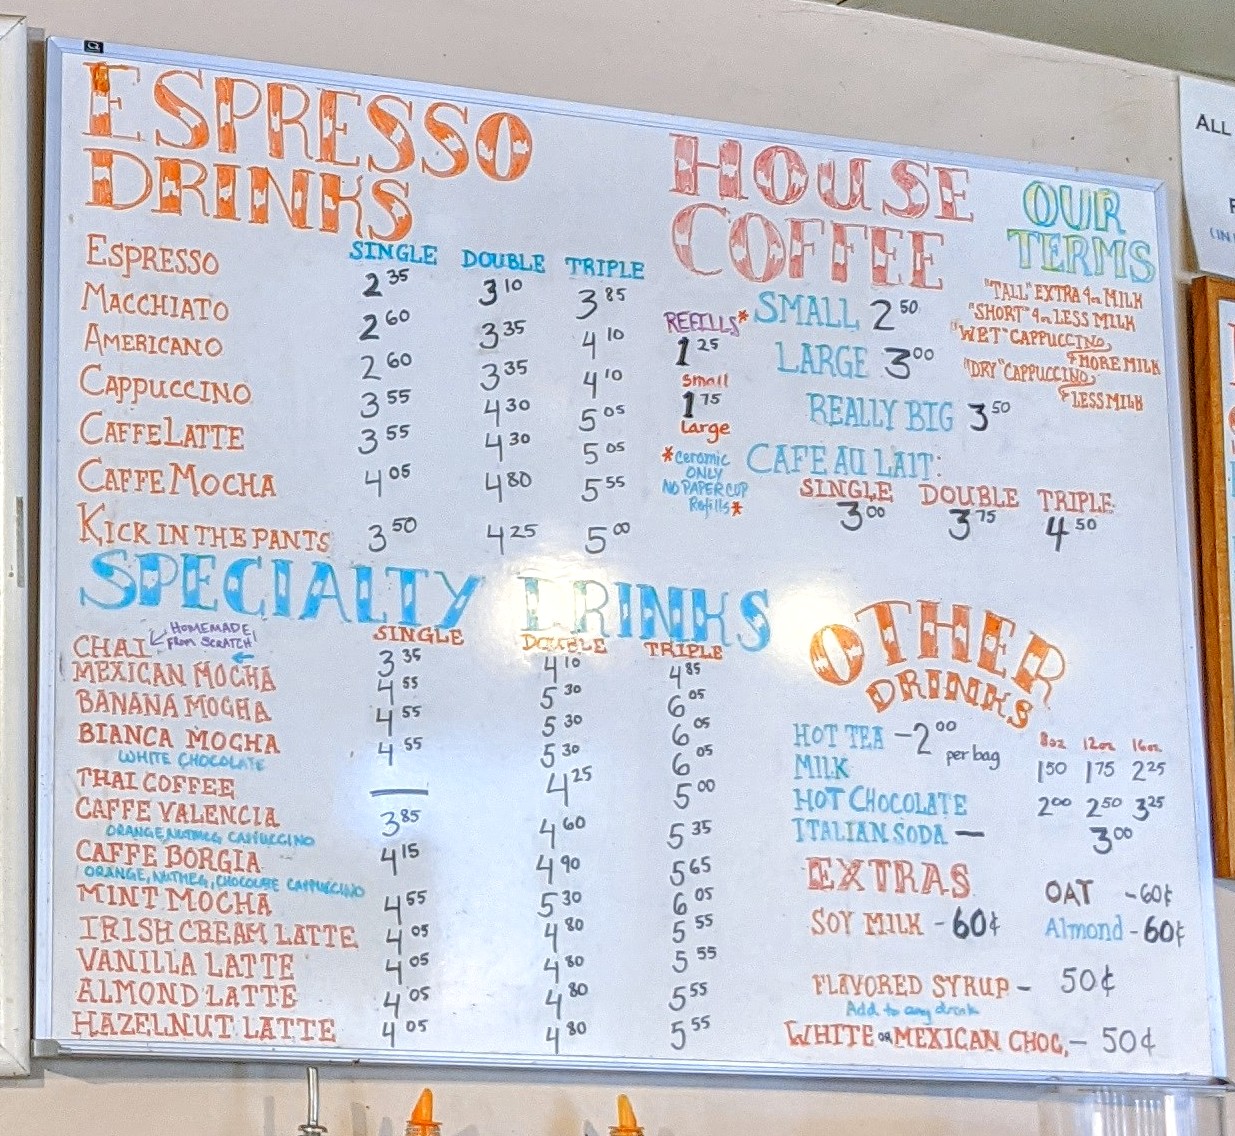 ESPRESSO
DRINKS
SINGLE DOUBLE TRIPLE
ESPRESSO 2.35 3.10 3.85
MACCHIATO 2.60 3.35 4.10
AMERICANO 2.60 3.35 4.10
CAPPUCCINO 3.55 4.30 5.05
CAFFE LATTE 3.55 4.30 5.05
CAFFE MOCHA 4.05 4.80 5.55
KICK IN THE PANTS 3.50 4.25 5.00
HOUSE
COFFEE
SMALL 2.50
LARGE 3.00
REALLY BIG 3.50
REFILLS*
1.25
small
1.75
large
*ceramic
ONLY
NO PAPER CUP
Refills*
CAFE AU LAIT:
SINGLE DOUBLE TRIPLE
3.00 3.75 4.50
OUR
TERMS
"TALL" EXTRA 4oz MILK
"SHORT" 4oz LESS MILK
"WET" CAPPUCCINO,
MORE MILK
"DRY" CAPPUCCINO,
LESS MILK
SPECIALTY DRINKS
SINGLE DOUBLE TRIPLE
CHAI HOMEMADE! 3.35 4.10 4.85
FROM SCRATCH
MEXICAN MOCHA 4.55 5.30 6.05
BANANA MOCHA 4.55 5.30 6.05
BIANCA MOCHA 4.55 5.30 6.05
WHITE CHOCOLATE
THAI COFFEE — 4.25 5.00
CAFFE VALENCIA 3.85 4.60 5.35
ORANGE, NUTMEG, CAPPUCCINO
CAFFE BORGIA 4.15 4.90 5.65
ORANGE, NUTMEG, CHOCOLATE CAPPUCCINO
MINT MOCHA 4.55 5.30 6.05
IRISH CREAM LATTE 4.05 4.80 5.55
VANILLA LATTE 4.05 4.80 5.55
ALMOND LATTE 4.05 4.80 5.55
HAZELNUT LATTE 4.05 4.80 5.55
OTHER
DRINKS
HOT TEA - 2.00 per bag
8oz 12oz 16oz
MILK 1.50 1.75 2.25
HOT CHOCOLATE 2.00 2.50 3.25
ITALIAN SODA — 3.00
EXTRAS
OAT - 60¢
SOY MILK - 60¢ Almond - 60¢
FLAVORED SYRUP - 50¢
Add to any drink
WHITE OR MEXICAN CHOC. - 50¢
ALL